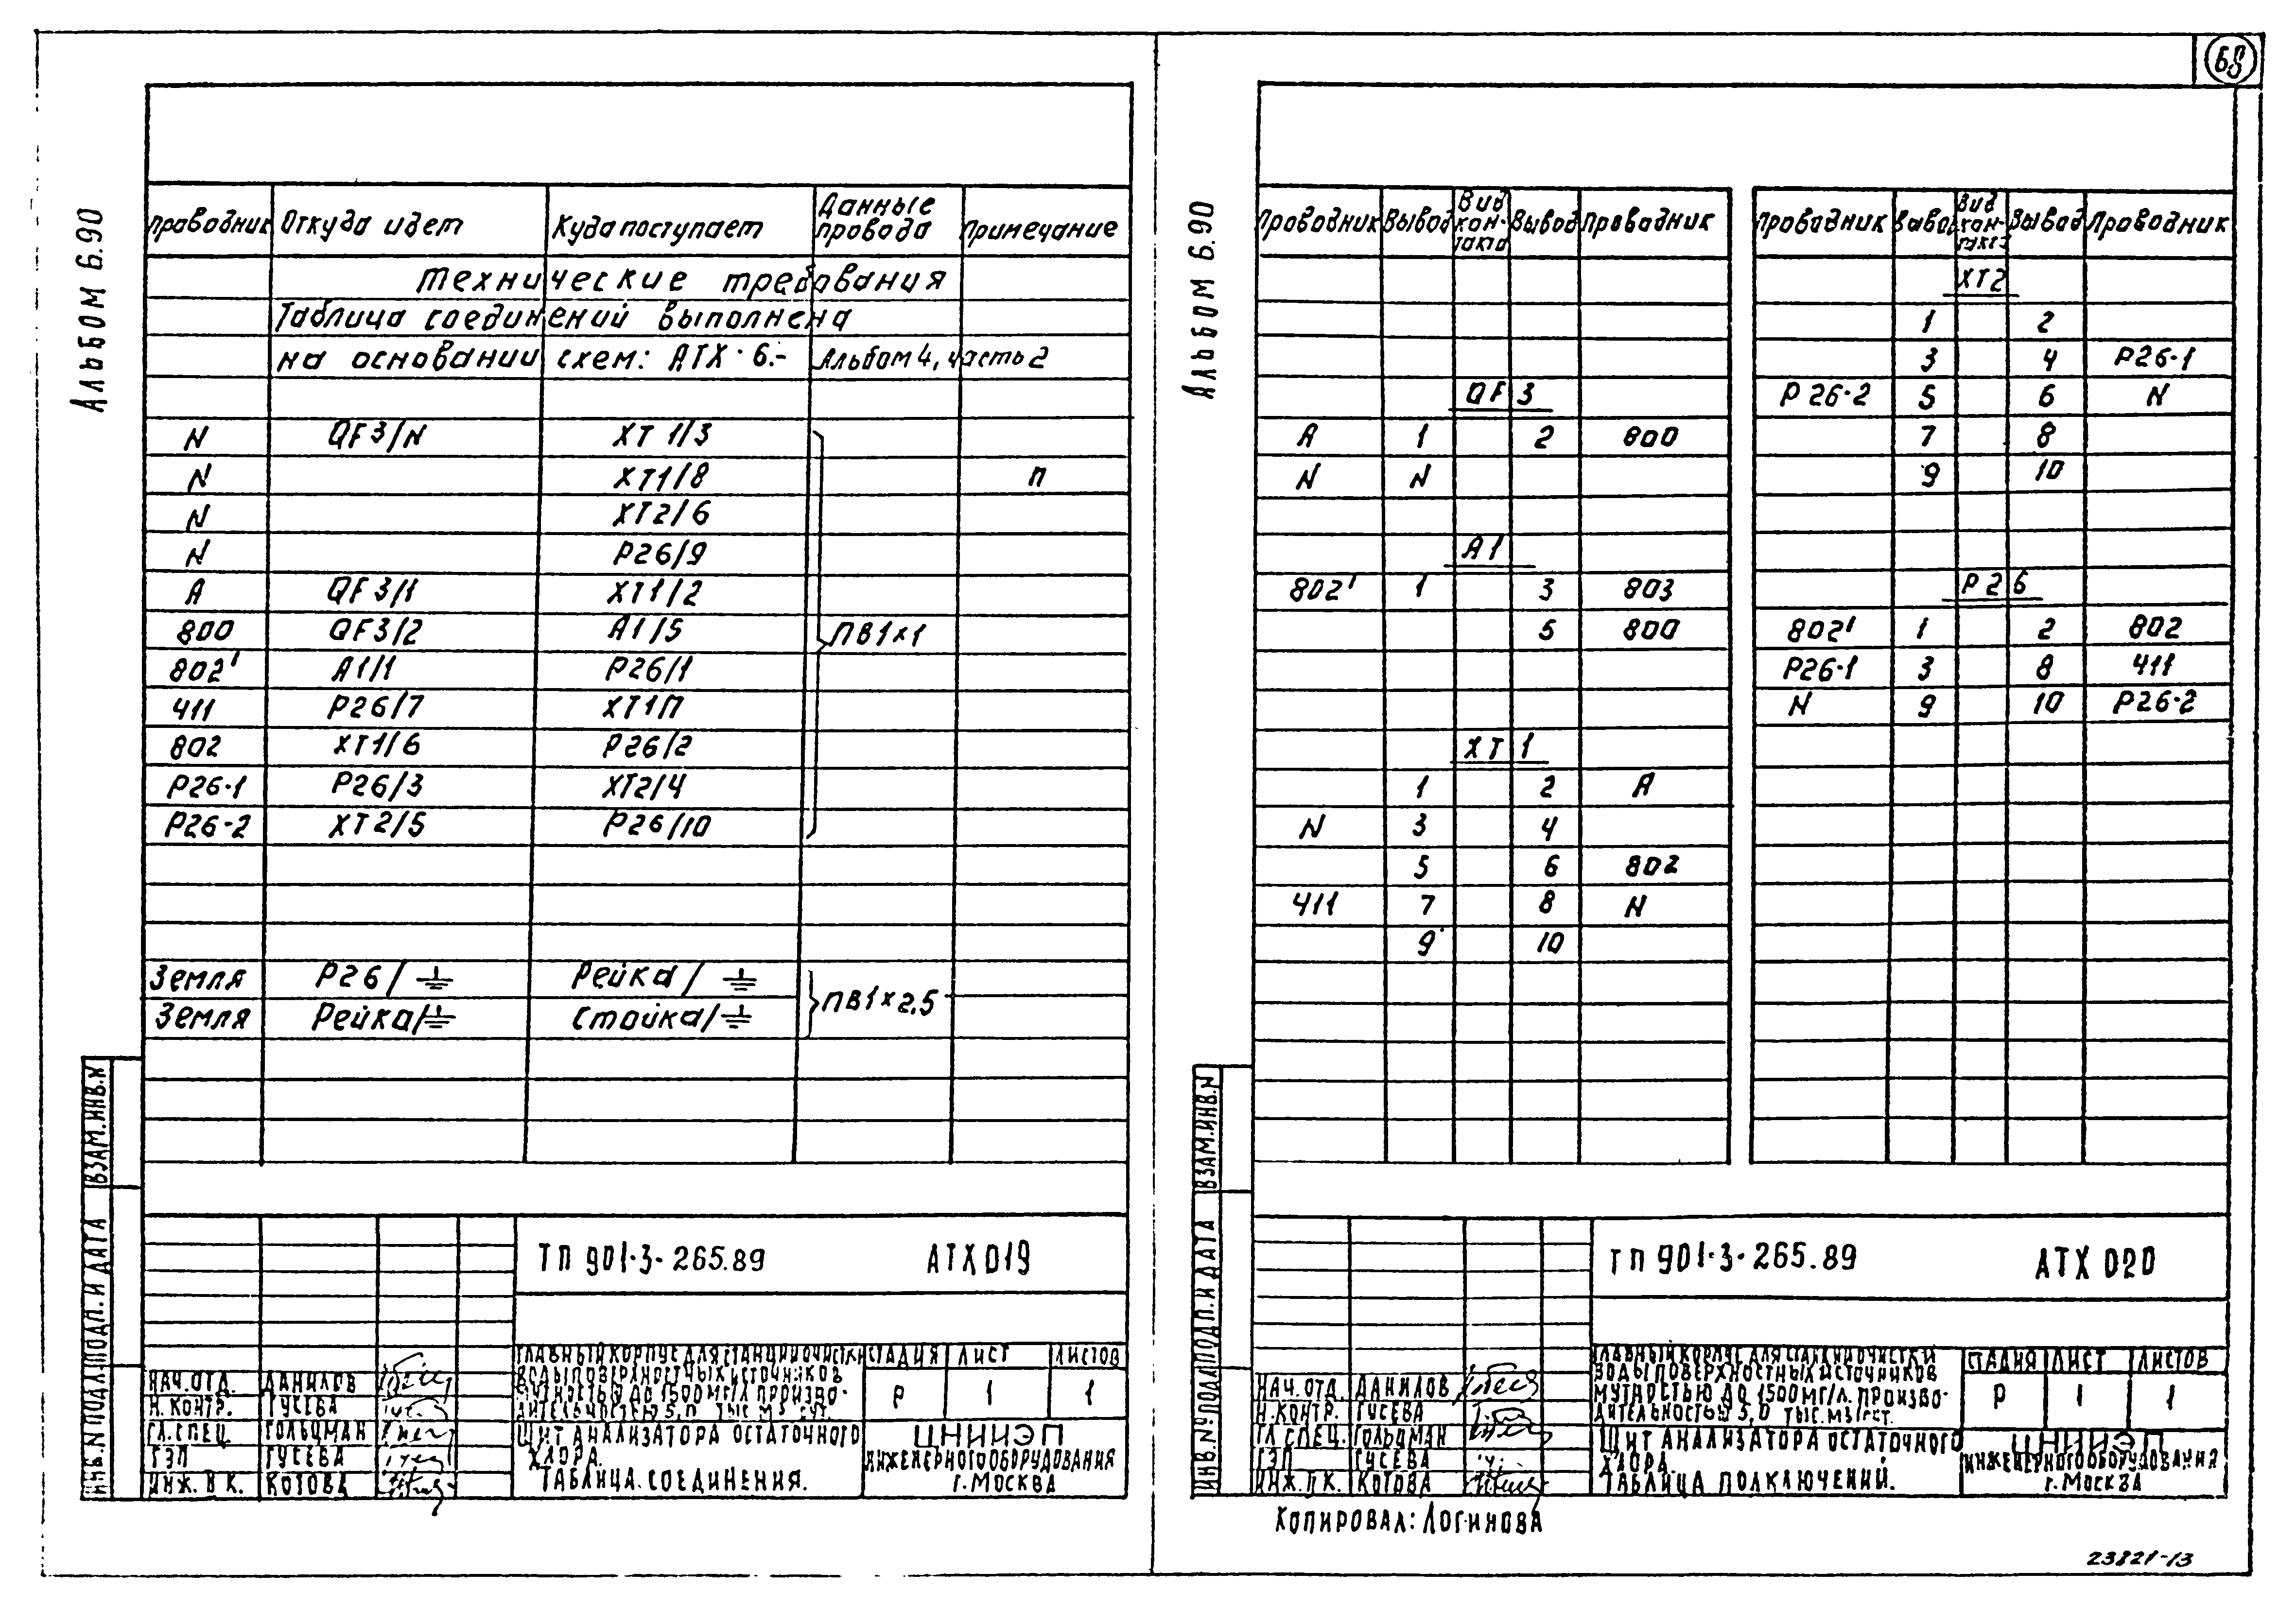 68
Альбом 6.90
Проводник Откуда идет Куда поступает Данные провода Примечание
Технические требования
Таблица соединений выполнена
на основании схем: АТХ·6.- Альбом 4, часть 2
N QF3/N XT1/3
N XT1/8 п
N XT2/6
N P26/9
A QF3/1 XT1/2
800 QF3/2 A1/5 ПВ1×1
802' A1/1 P26/1
411 P26/7 XT1/7
802 XT1/6 P26/2
P26-1 P26/3 XT2/4
P26-2 XT2/5 P26/10
Земля P26/⏚ Рейка/⏚ ПВ1×2,5
Земля Рейка/⏚ Стойка/⏚
ВЗАМ.ИНВ.N
ПОДП. И ДАТА
ИНВ.N ПОДЛ.
ТП 901-3-265.89 АТХ 019
ГЛАВНЫЙ КОРПУС ДЛЯ СТАНЦИИ ОЧИСТКИ
ВОДЫ ПОВЕРХНОСТНЫХ ИСТОЧНИКОВ
МУТНОСТЬЮ ДО 1500 МГ/Л ПРОИЗВО-
ДИТЕЛЬНОСТЬЮ 5,0 ТЫС М3 СУТ.
СТАДИЯ ЛИСТ ЛИСТОВ
Р 1 1
НАЧ.ОТД. ДАНИЛОВ
Н.КОНТР. ГУСЕВА
ГЛ.СПЕЦ. ГОЛЬЦМАН
ГЭП ГУСЕВА
ИНЖ. В К. КОТОВА
ЩИТ АНАЛИЗАТОРА ОСТАТОЧНОГО
ХЛОРА.
ТАБЛИЦА СОЕДИНЕНИЯ.
ЦНИИЭП
ИНЖЕНЕРНОГО ОБОРУДОВАНИЯ
г. МОСКВА
Альбом 6.90
Проводник Вывод Вид контакта Вывод Проводник
QF3
A 1 2 800
N N
A1
802' 1 3 803
5 800
XT1
1 2 A
N 3 4
5 6 802
411 7 8 N
9 10
Проводник Вывод Вид контакта Вывод Проводник
XT2
1 2
3 4 P26-1
P26-2 5 6 N
7 8
9 10
P26
802' 1 2 802
P26-1 3 8 411
N 9 10 P26-2
ВЗАМ.ИНВ.N
ПОДП. И ДАТА
ИНВ.N° ПОДЛ.
ТП 901-3-265.89 АТХ 020
ГЛАВНЫЙ КОРПУС ДЛЯ СТАНЦИИ ОЧИСТКИ
ВОДЫ ПОВЕРХНОСТНЫХ ИСТОЧНИКОВ
МУТНОСТЬЮ ДО 1500 МГ/Л. ПРОИЗВО-
ДИТЕЛЬНОСТЬЮ 5,0 ТЫС. М3/СУТ.
СТАДИЯ ЛИСТ ЛИСТОВ
Р 1 1
НАЧ.ОТД. ДАНИЛОВ
Н.КОНТР. ГУСЕВА
ГЛ.СПЕЦ. ГОЛЬЦМАН
ГЭП ГУСЕВА
ИНЖ. П К. КОТОВА
ЩИТ АНАЛИЗАТОРА ОСТАТОЧНОГО
ХЛОРА.
ТАБЛИЦА ПОДКЛЮЧЕНИЙ.
ЦНИИЭП
ИНЖЕНЕРНОГО ОБОРУДОВАНИЯ
г. МОСКВА
КОПИРОВАЛ: ЛОГИНОВА
23821-13